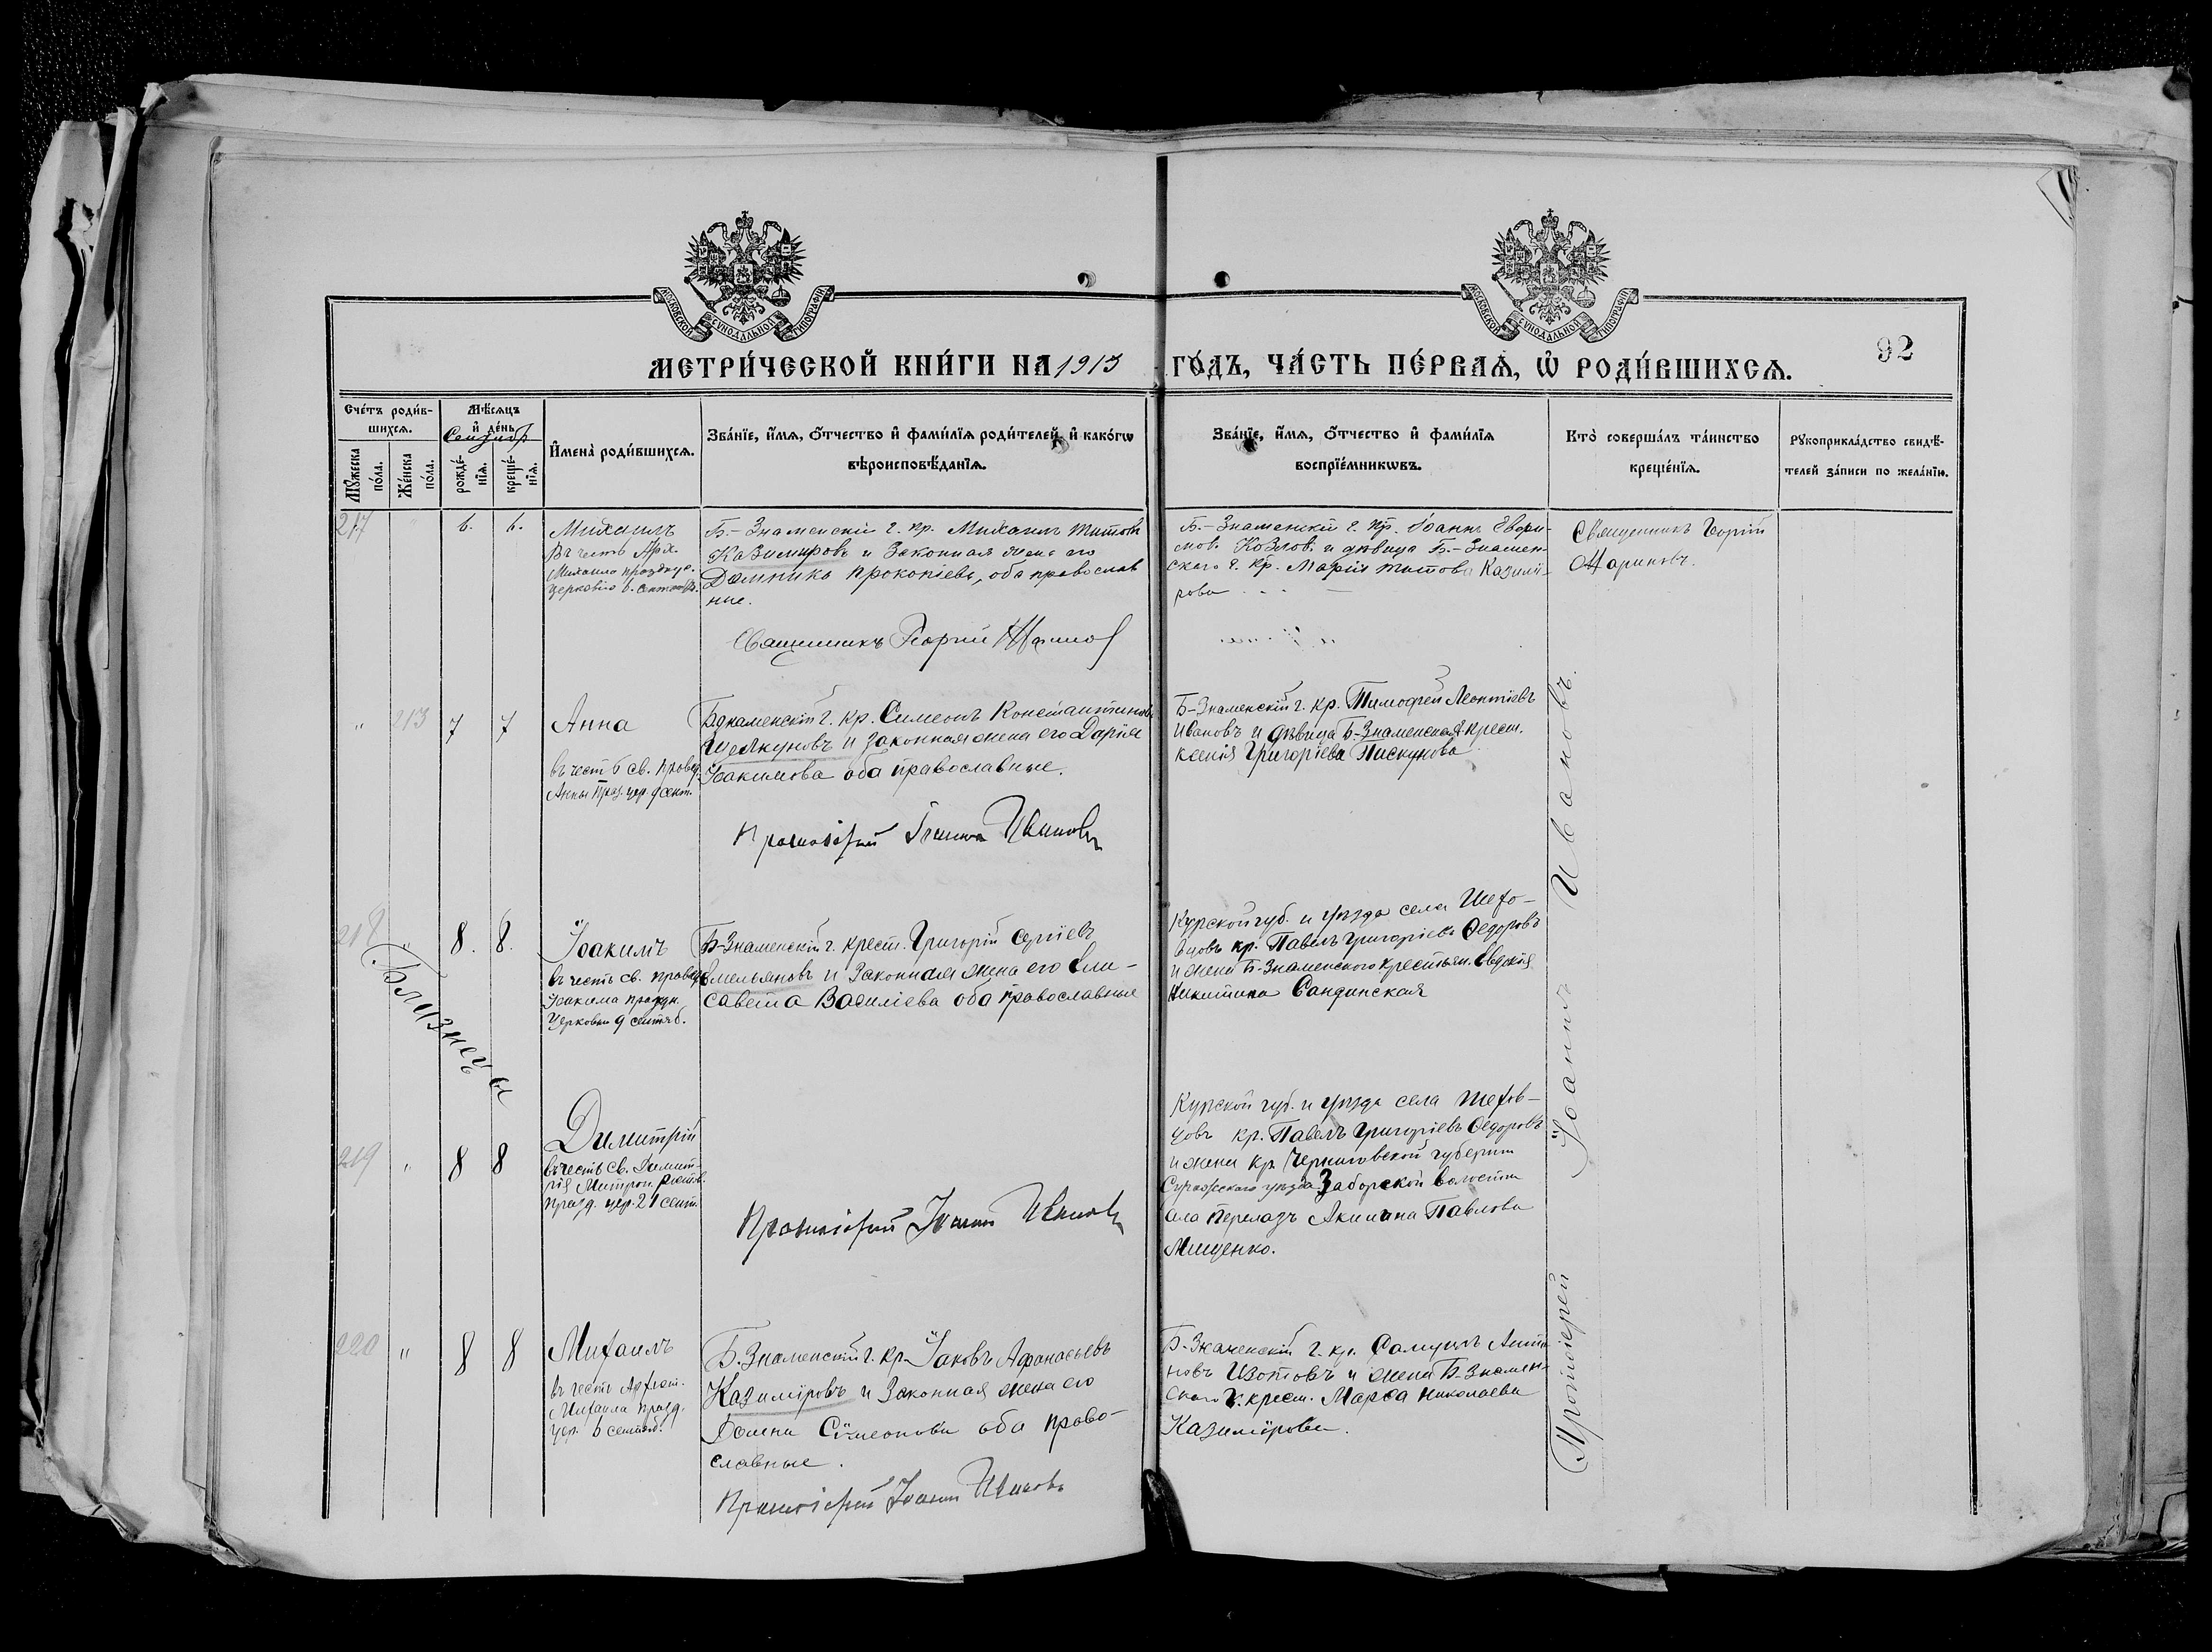 МОСКОВСКОЙ СѴНОДАЛЬНОЙ ТИПОГРАФІИ
МОСКОВСКОЙ СѴНОДАЛЬНОЙ ТИПОГРАФІИ
92
МЕТРИ́ЧЕСКОЙ КНИ́ГИ НА 1913 ГО́ДЪ, ЧА́СТЬ ПЕ́РВАѦ, Ѡ҆ РОДИ́ВШИХСѦ.
Сче́тъ роди́в-
шихсѧ.
Мꙋ́жеска
по́ла.
Же́нска
по́ла.
Мѣ́сѧцъ
и҆ де́нь
Сентябр
рожде́-
нїѧ.
креще́-
нїѧ.
И҆мена̀ роди́вшихсѧ.
Зва́нїе, и҆́мѧ, ѻ҆́тчество и҆ фами́лїѧ роди́телей, и҆ како́гѡ
вѣроисповѣ́данїѧ.
Зва́нїе, и҆́мѧ, ѻ҆́тчество и҆ фами́лїѧ
воспрїе́мникѡвъ.
Кто̀ соверша́лъ та́инство
креще́нїѧ.
Рꙋкоприкла́дство свидѣ́-
телей за́писи по жела́нїю.
217
"
6.
6.
Михаилъ
Въ честь Арх.
Михаила празднуе.
церковію 6. сентября.
Б.-Знаменскій г. кр. Михаилъ Титовъ
Казимировъ и законная жена его
Домника Прокопіева, оба православ
ные.
Священникъ Георгій
Б.-Знаменскій г. кр. Іоаннъ Евфи-
мов. Козлов. и дѣвица Б.-Знамен-
скаго г. кр. Марія Титова Казими-
рова
Священникъ Георгій
Мариновъ.
"
213
7
7
Анна
въ честь св. правед.
Анны праз. цер. 9 сент.
Б-знаменскій г. кр. Симеонъ Константиновъ
Шелкуновъ и законная жена его Дарія
Іоакимова оба православные.
Протоіерей Іоаннъ Ивановъ
Б-Знаменскій г. кр. Тимофей Леонтіевъ
Ивановъ и дѣвица Б-Знаменская крест.
Ксенія Григоріева Пискунова
218
"
8.
8.
Іоакимъ
въ честь св. правед
Іоакима праздн.
Церковью 9 сентяб.
Б-Знаменскій г. крест. Григорій Сергіевъ
Емельяновъ и законная жена его Ели-
савета Василіева оба православные
Курской губ. и уѣзда села Шехо-
вцовъ кр. Павелъ Григоріевъ Ѳедоровъ
и жена Б-Знаменского крестьян. Евдокія
Никитина Сандинская
Близнецы
219
"
8
8
Димитрій
въ честь св. Димит-
рія Митроп. Ростов.
празд. цер. 21 сент.
Протоіерей Іоаннъ Ивановъ
Курской губ. и уѣзда села Шехов-
цовъ кр. Павелъ Григоріевъ Ѳедоровъ
и жена кр. Черниговской губерніи
Суражскаго уѣзда Заборской волости
села Перелазъ Акилина Павлова
Мищенко.
220
"
8
8
Михаилъ
въ честь Архист.
Михаила празд.
цер. 6 сентяб.
Б.Знаменскій г. кр. Іаковъ Аѳанасьевъ
Казиміровъ и законная жена его
Домна Сѵмеонова оба право-
славные.
Протоіерей Іоаннъ Ивановъ
Б-Знаменскій г. кр. Самуилъ
Изотовъ и жена Б-Знамен-
скаго г. крест. Марѳа Николаева
Казимірова.
Протоіерей Іоаннъ Ивановъ.